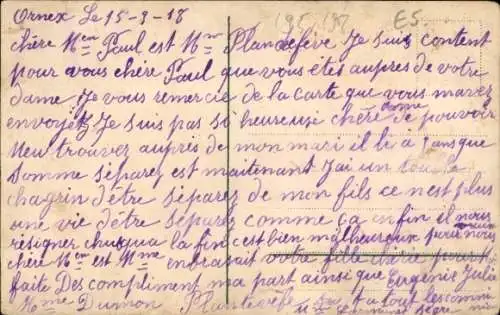 195/198 E5.
Ornex Le 15-9-18
chère Men Paul est Mm Plandefève Je suis content
pour vous chère Paul que vous étes aupres de votre
dame Je vous remercie de la carte que vous mavez
envoyet Je suis pas si heureuse chère dame de pouvoir
meu trouver auprés de mon mari il li a 4 ans que
somme séparez est maintenant Jai un tou le
chagrin d'étre séparez de mon fils ce nest plus
une vie d'étre séparez comme ça enfin il nous
résigner chusqua la fin cest bien malheureux pour nous
chère Men est Mme enbrasait votre fille claire pour
faite Des compliment ma part ainsi que Eugénie Julie
Mme Dumon